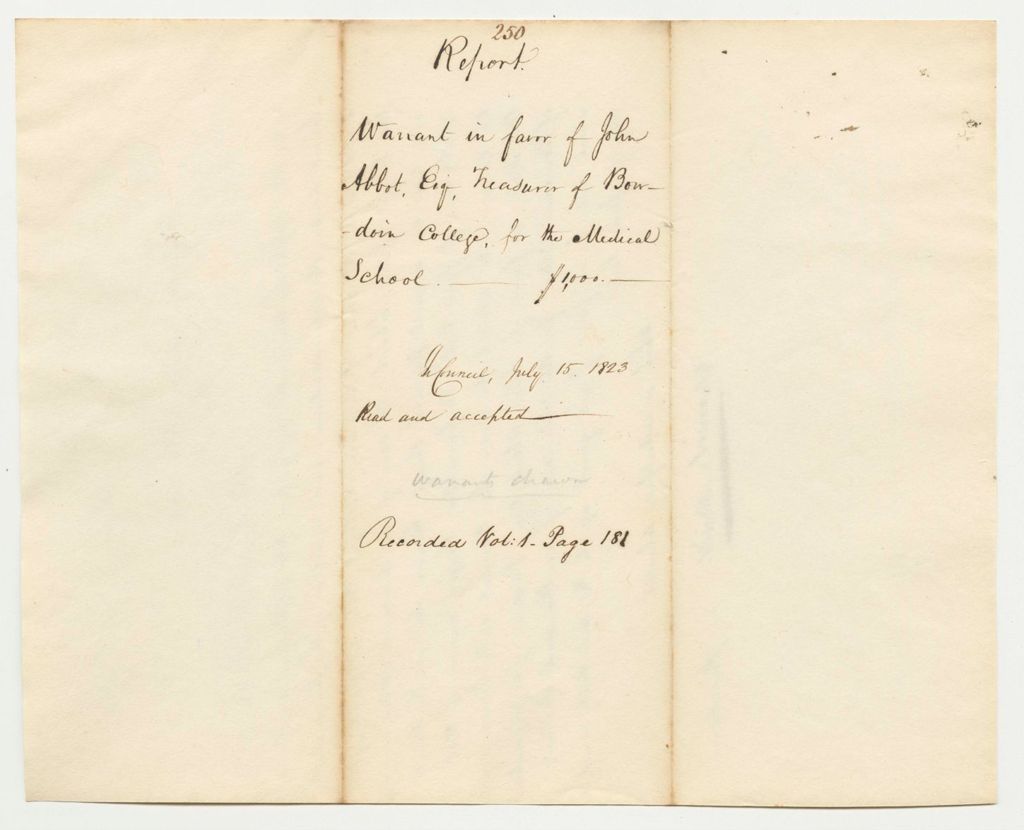 250
Report.
Warrant in favor of John
Abbot, Esq, Treasurer of Bow-
-doin College, for the Medical
School. — $1,000. —
In Council, July 15. 1823
Read and accepted —
Warrants drawn
Recorded Vol: 1 - Page 181